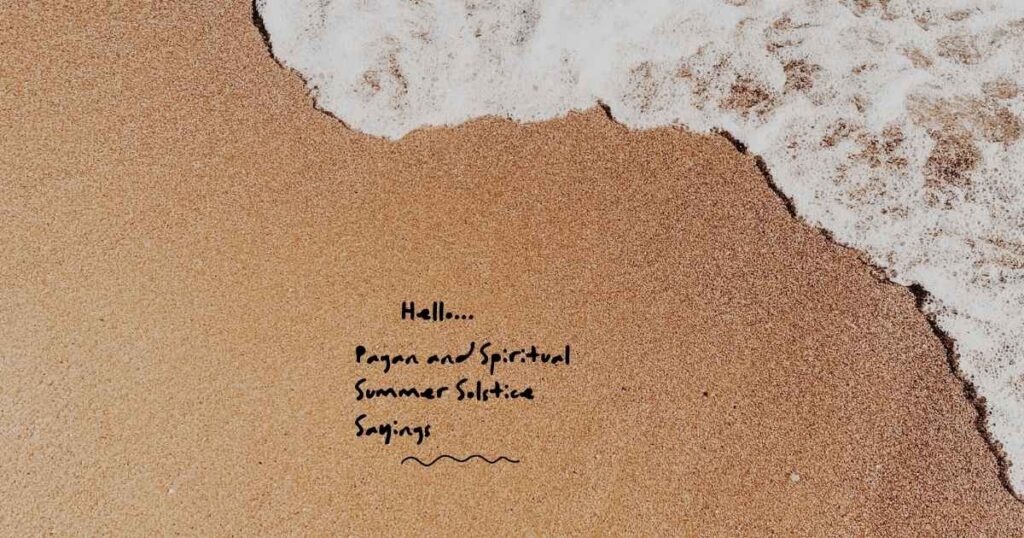 Hello...
Pagan and Spiritual
Summer Solstice
Sayings